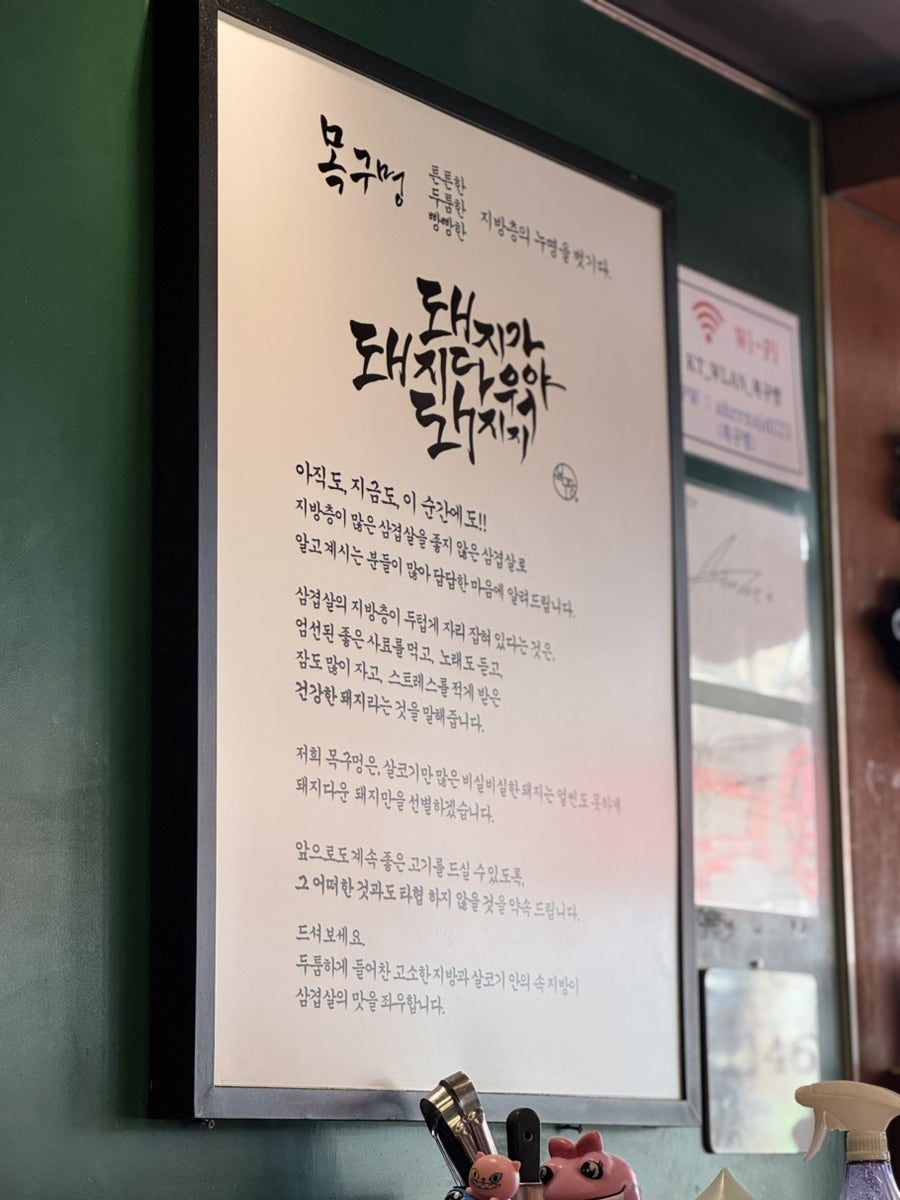 목구멍
튼튼한
두툼한
빵빵한
지방층의 누명을 벗기다.
돼지가
돼지다워야
돼지지
아직도, 지금도, 이 순간에도!!
지방층이 많은 삼겹살을 좋지 않은 삼겹살로
알고계시는 분들이 많아 답답한 마음에 알려드립니다.
삼겹살의 지방층이 두텁게 자리 잡혀 있다는 것은,
엄선된 좋은 사료를 먹고, 노래도 듣고,
잠도 많이 자고, 스트레스를 적게 받은
건강한 돼지라는 것을 말해줍니다.
저희 목구멍은, 살코기만 많은 비실비실한 돼지는 얼씬도 못하게
돼지다운 돼지만을 선별하겠습니다.
앞으로도 계속 좋은 고기를 드실 수 있도록,
그 어떠한 것과도 타협 하지 않을 것을 약속 드립니다.
드셔보세요.
두툼하게 들어찬 고소한 지방과 살코기 안의 속 지방이
삼겹살의 맛을 좌우합니다.
Wi-Fi
KT_WLAN_목구멍
PW :
(목구멍)